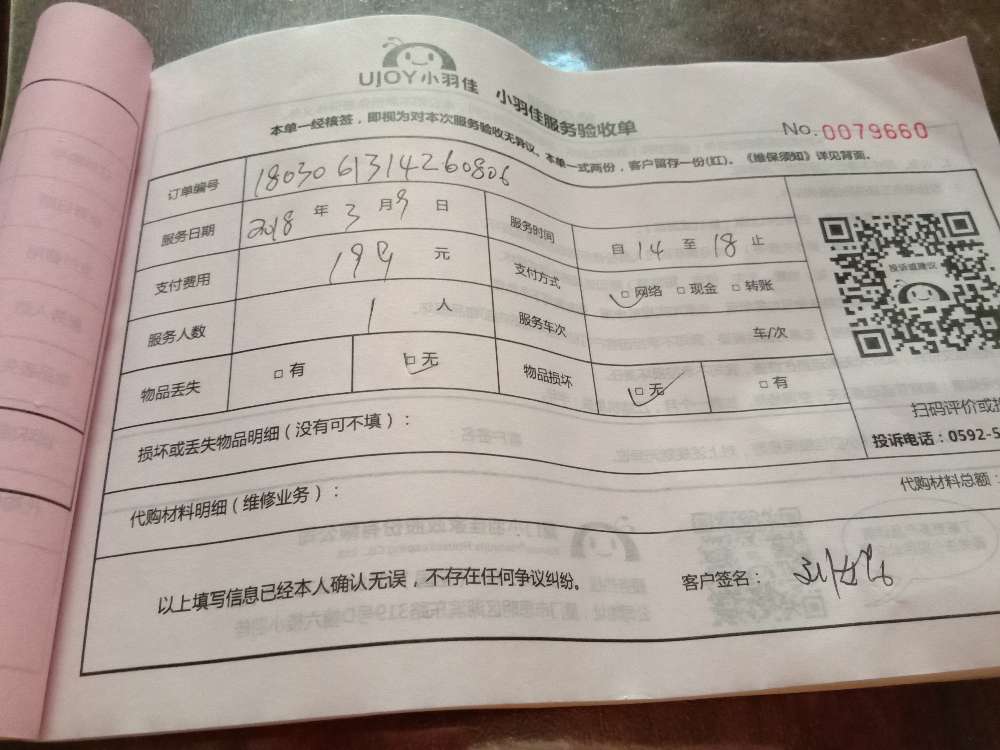 UJOY小羽佳 小羽佳服务验收单
本单一经核签，即视为对本次服务验收无异议。本单一式两份，客户留存一份(红)。《维保须知》详见背面。
No.0079660
订单编号 1803061314260806
服务日期 2018 年 3 月 9 日 服务时间 自 14 至 18 止
支付费用 元 支付方式 □网络 □现金 □转账
服务人数 1 人 服务车次 车/次
物品丢失 □有 □无 物品损坏 □无 □有
投诉或建议
扫码评价或
投诉电话：0592-5
损坏或丢失物品明细（没有可不填）：
代购材料明细（维修业务）：
代购材料总额：
以上填写信息已经本人确认无误，不存在任何争议纠纷。 客户签名：